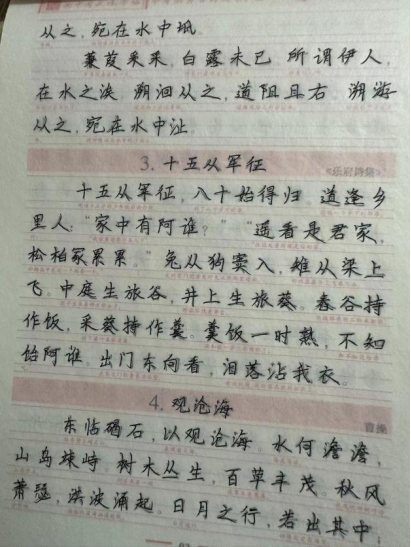 从之,宛在水中坻。
蒹葭采采,白露未已 所谓伊人,
在水之涘 溯洄从之,道阻且右。溯游
从之,宛在水中沚。
3. 十五从军征
《乐府诗集》
十五从军征,八十始得归 道逢乡
里人:“家中有阿谁?”“遥看是君家,
松柏冢累累。”兔从狗窦入,雉从梁上
飞。中庭生旅谷,井上生旅葵。舂谷持
作饭,采葵持作羹。羹饭一时熟,不知
饴阿谁。出门东向看,泪落沾我衣。
4. 观沧海
曹操
东临碣石,以观沧海。水何澹澹,
山岛竦峙。树木丛生,百草丰茂。秋风
萧瑟,洪波涌起。日月之行,若出其中